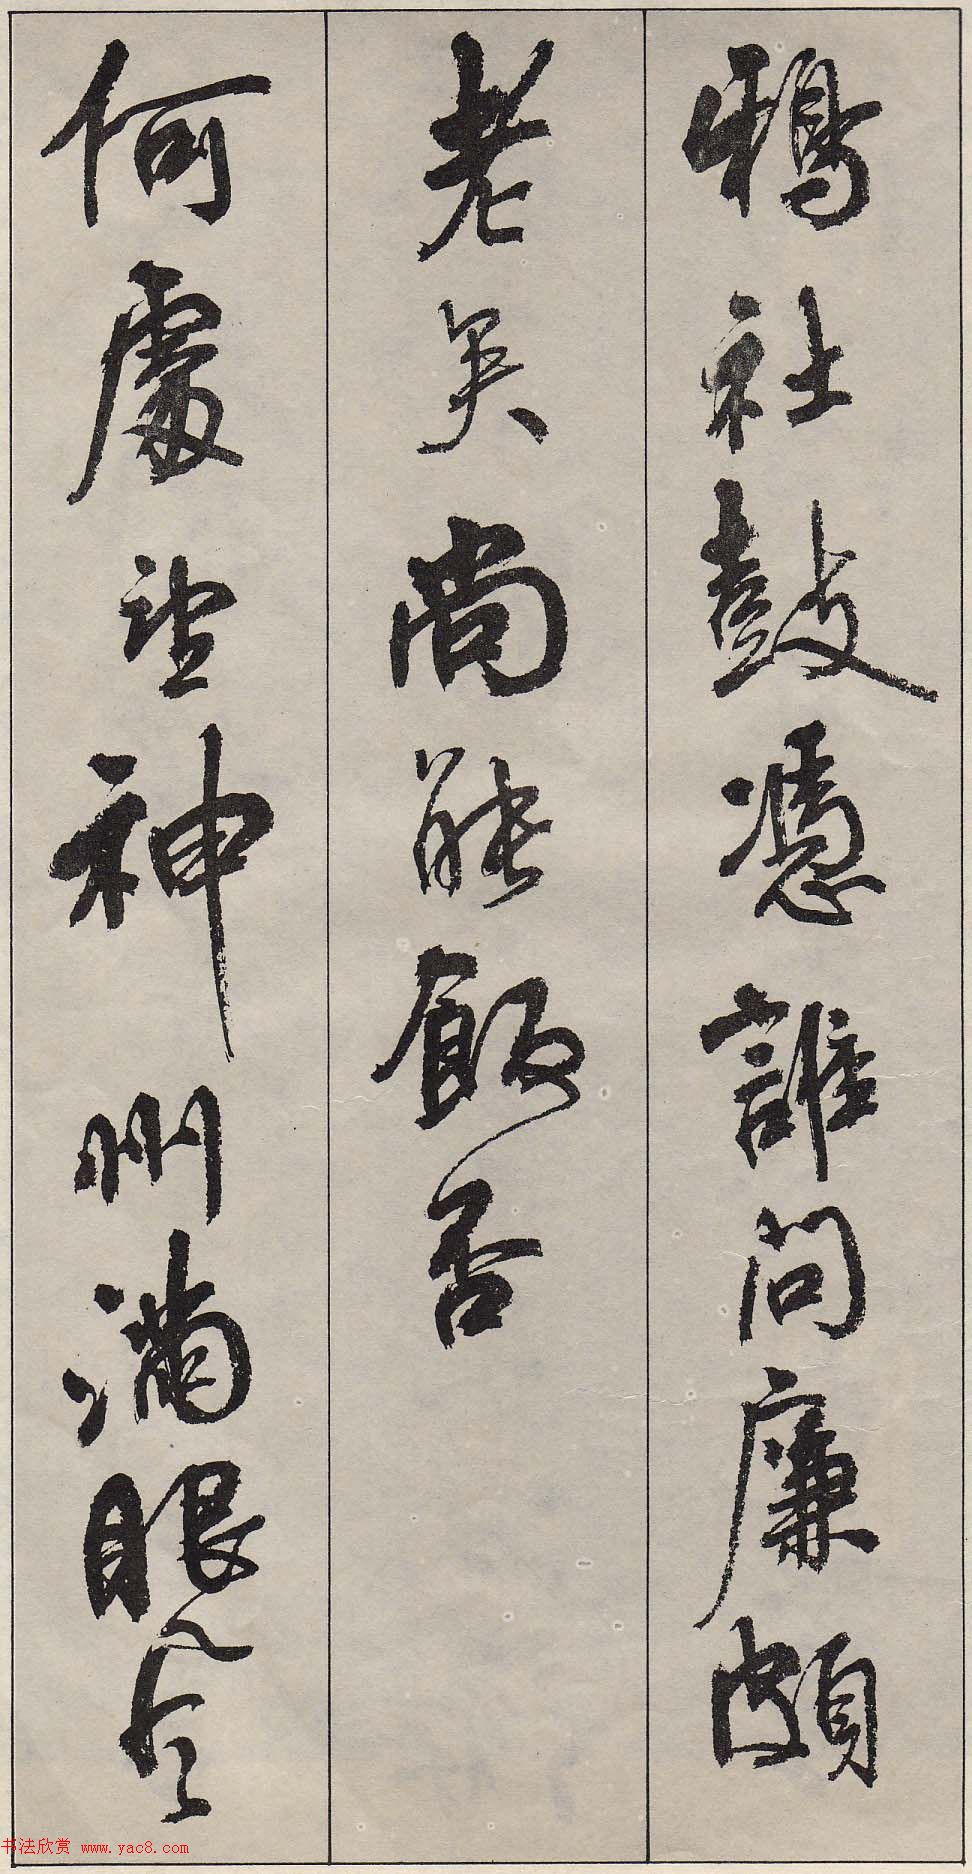 鴉社鼓憑誰問廉頗
老矣尚能飯否
何處望神州滿眼風
书法欣赏 www.yac8.com